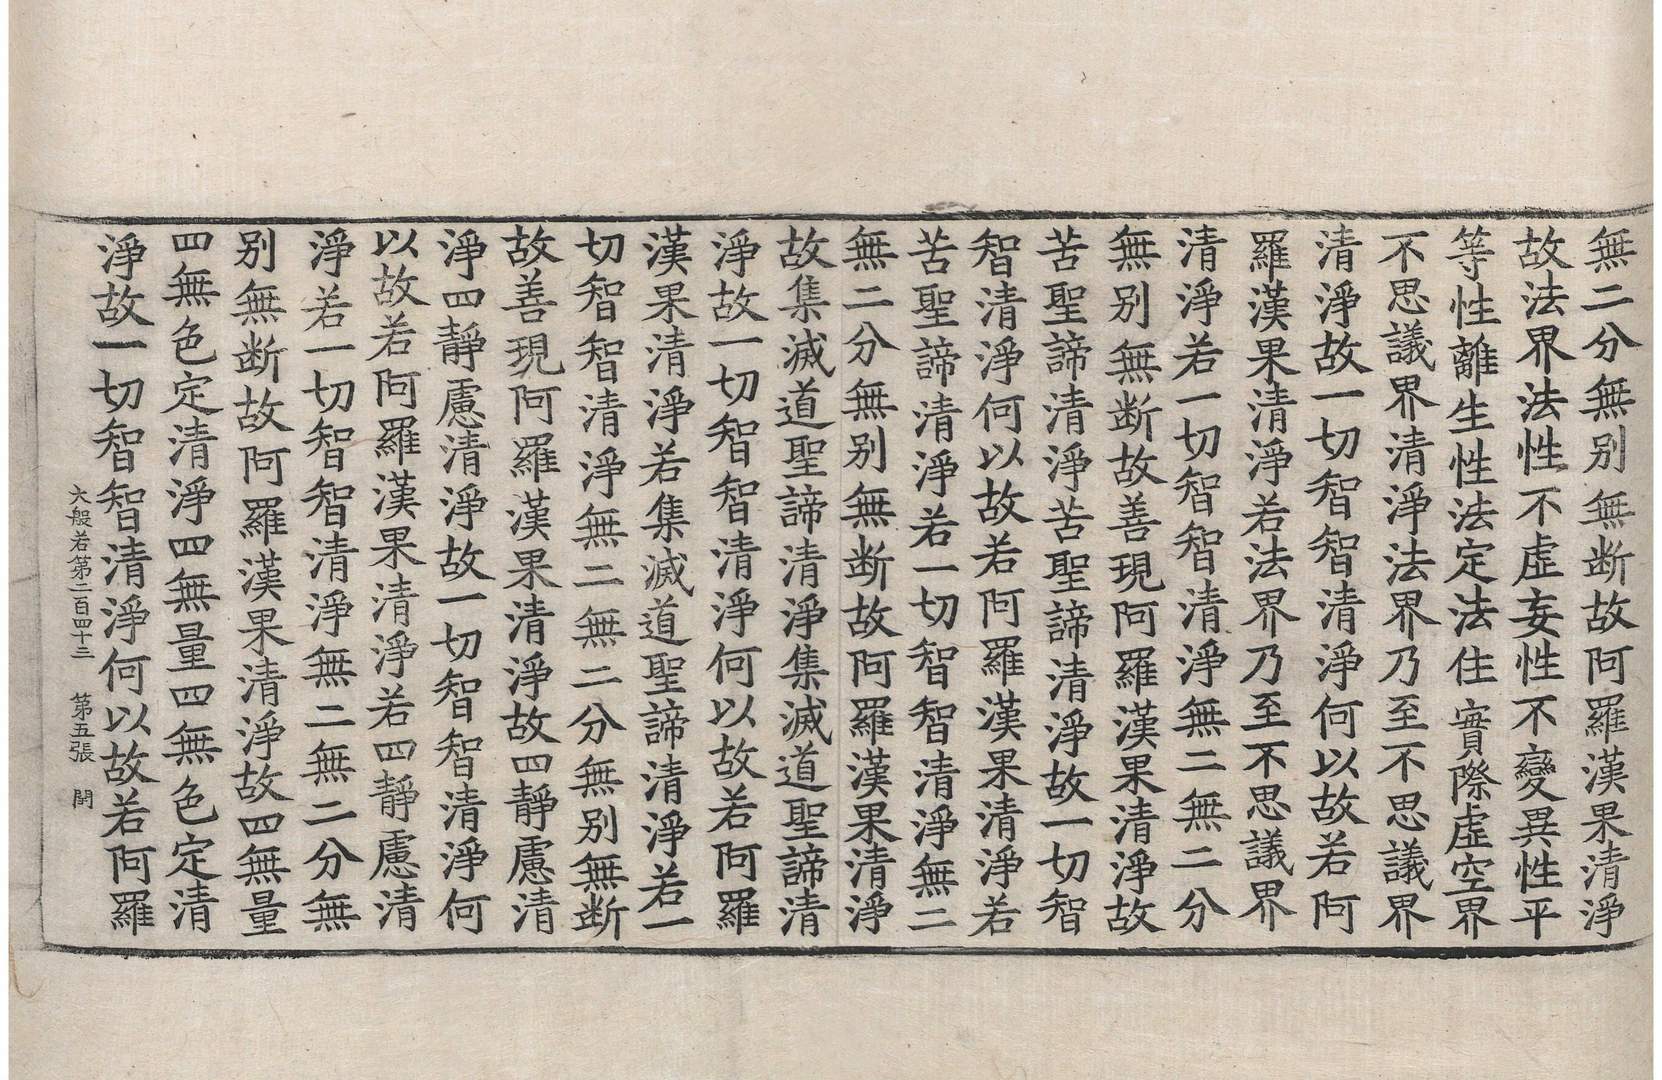 無二分無别無断故阿羅漢果清淨
故法界法性不虛妄性不變異性平
等性離生性法定法住實際虛空界
不思議界清淨法界乃至不思議界
清淨故一切智智清淨何以故若阿
羅漢果清淨若法界乃至不思議界
清淨若一切智智清淨無二無二分
無别無断故善現阿羅漢果清淨故
苦聖諦清淨苦聖諦清淨故一切智
智清淨何以故若阿羅漢果清淨若
苦聖諦清淨若一切智智清淨無二
無二分無别無断故阿羅漢果清淨
故集滅道聖諦清淨集滅道聖諦清
淨故一切智智清淨何以故若阿羅
漢果清淨若集滅道聖諦清淨若一
切智智清淨無二無二分無别無断
故善現阿羅漢果清淨故四靜慮清
淨四靜慮清淨故一切智智清淨何
以故若阿羅漢果清淨若四靜慮清
淨若一切智智清淨無二無二分無
别無断故阿羅漢果清淨故四無量
四無色定清淨四無量四無色定清
淨故一切智智清淨何以故若阿羅
大般若第二百四十三 第五張 閏